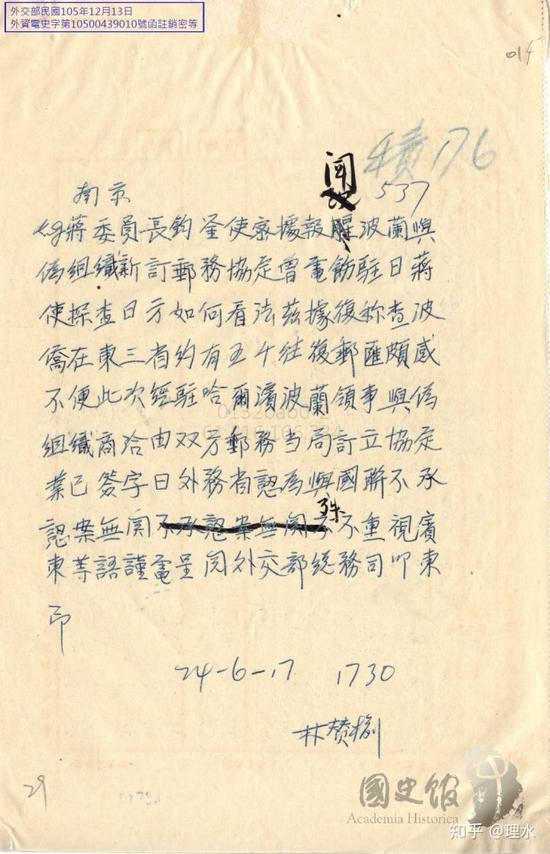 外交部民國105年12月13日
外資電史字第10500439010號函註銷密等
014
積176
閩 537
南京
蔣委員長鈞鑒使密據報 波蘭與
偽組織新訂郵務協定曾電飭駐日蔣
使探查日方如何看法茲據復称查波
僑在東三省約有五千往復郵匯頗感
不便此次經駐哈爾濱波蘭領事與偽
組織商洽由双方郵務当局訂立協定
業已簽字日外務省認為與國聯不承
認案無関不承認案無関 殊不重視廣
東等語謹電呈 外交部総務司叩東
印
24-6-17 1730
林贊
29
國史館
Academia Historica
知乎 @理水